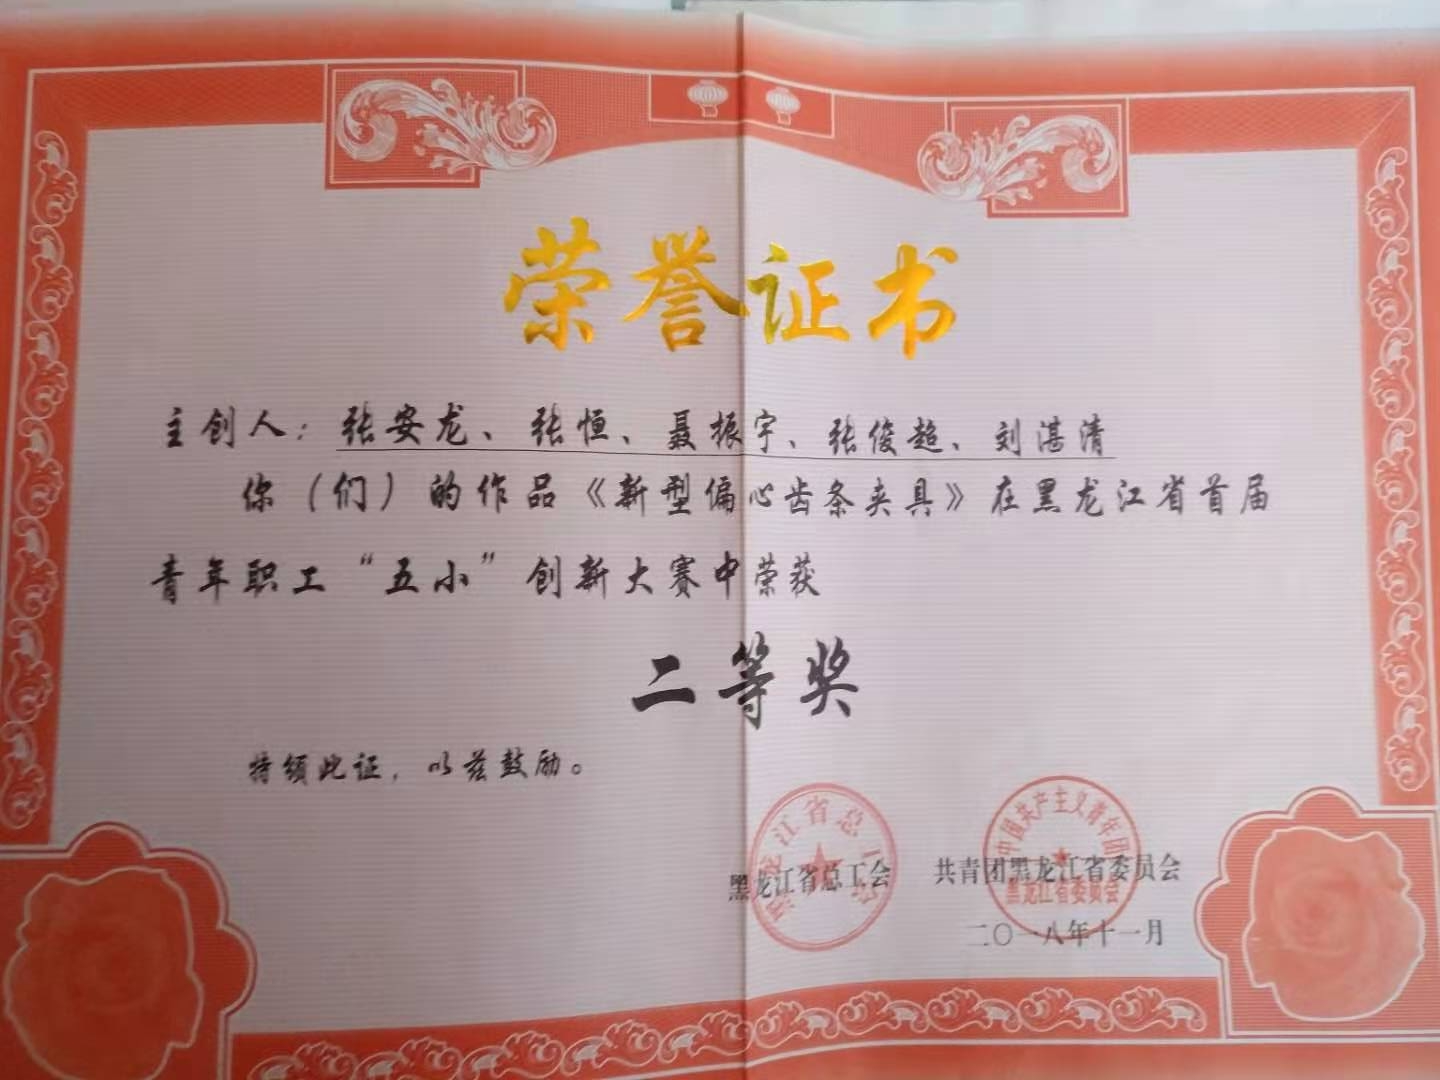 荣誉证书
主创人：张安龙、张恒、聂振宇、张俊超、刘湛清
你（们）的作品《新型偏心齿条夹具》在黑龙江省首届
青年职工“五小”创新大赛中荣获
二等奖
特颁此证，以兹鼓励。
黑龙江省总工会
黑龙江省总工会
共青团黑龙江省委员会
中国共产主义青年团
黑龙江省委员会
二〇一八年十一月